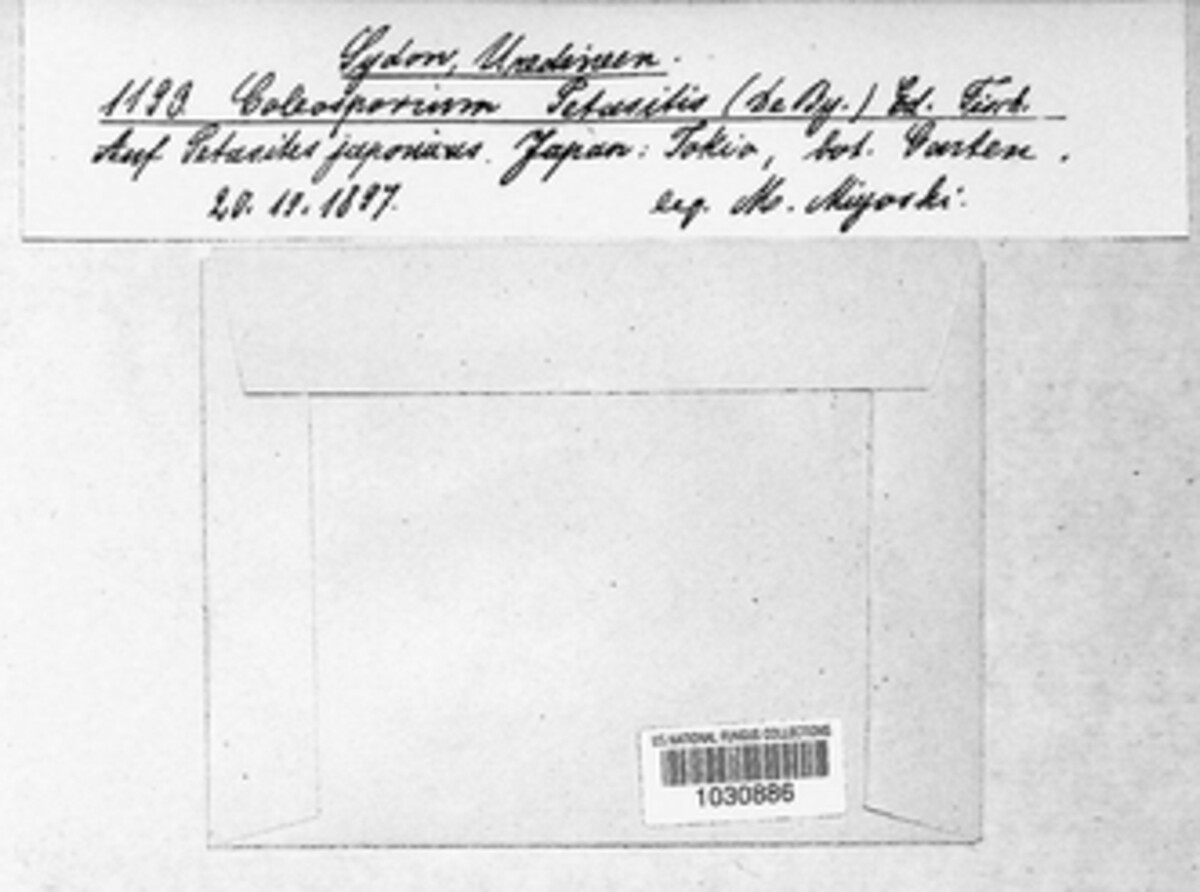 Sydow, Uredineen.
1193 Coleosporium Petasitis (De By.) Ed. Fisch.
Auf Petasites japonicus. Japan: Tokio, bot. Garten.
20. 10. 1897. leg. M. Miyoshi.
US NATIONAL FUNGUS COLLECTIONS
1030886